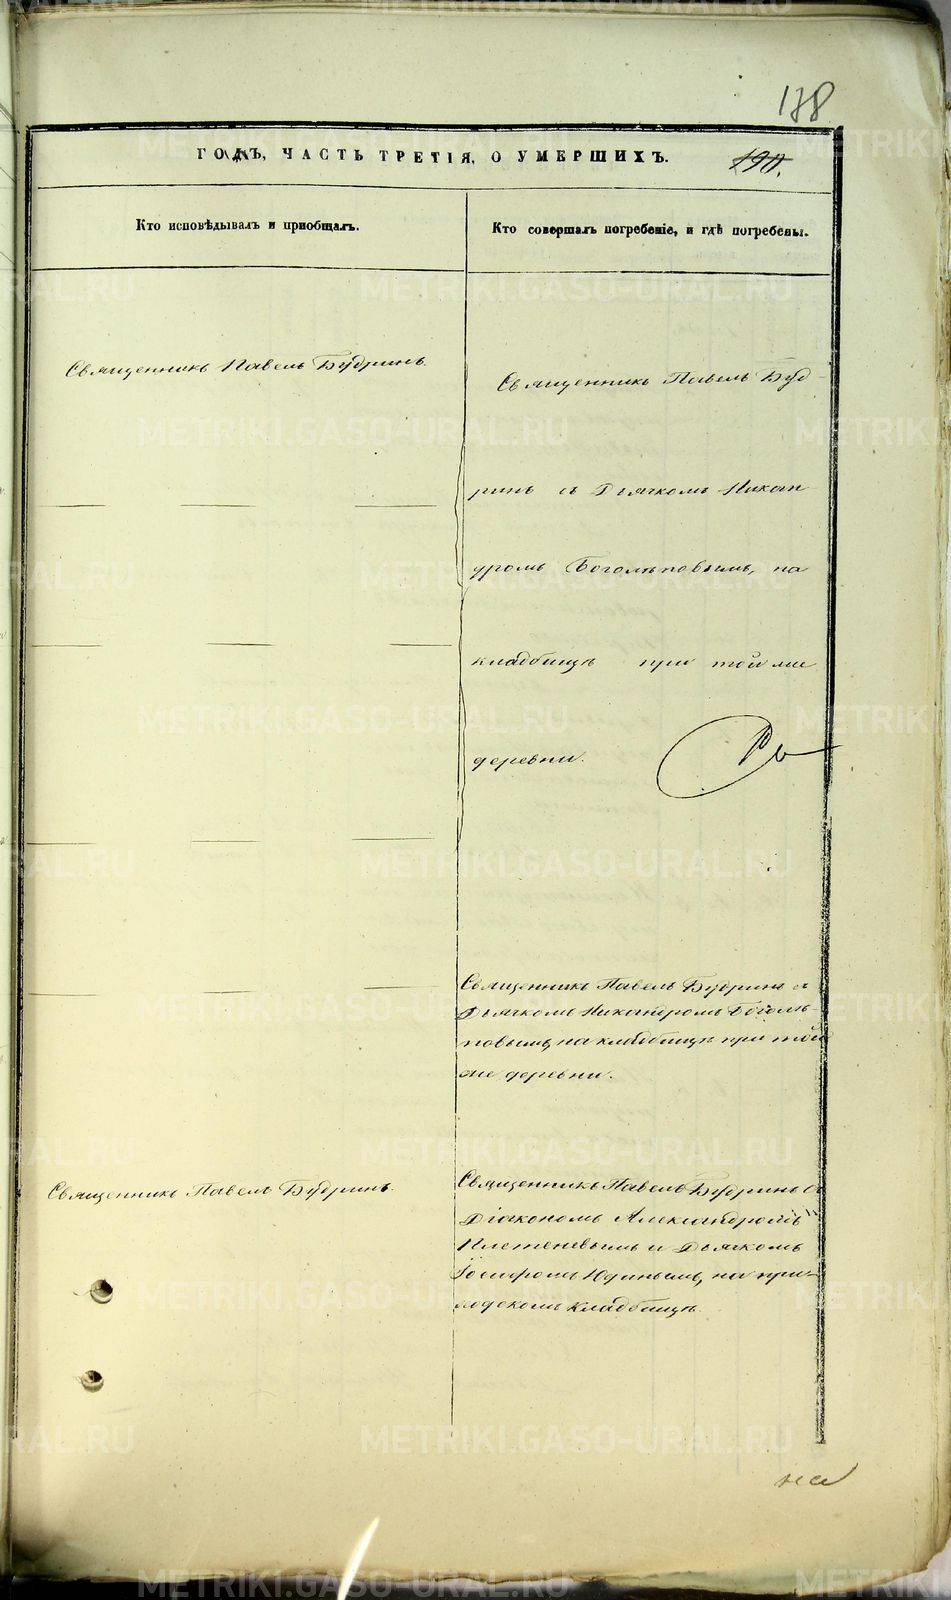 178
ГОДЪ, ЧАСТЬ ТРЕТІЯ, О УМЕРШИХЪ.
190.
Кто исповѣдывалъ и пріобщалъ.
Кто совершалъ погребеніе, и гдѣ погребены.
Священникъ Павелъ Будринъ.
Священникъ Павелъ Буд-
ринъ съ Дьячкомъ Никан
дромъ Боголѣповымъ, на
кладбищѣ при той же
деревни.
Священникъ Павелъ Будринъ съ
Дьячкомъ Никандромъ Боголѣ-
повымъ, на кладбищѣ при той
же деревни.
Священникъ Павелъ Будринъ.
Священникъ Павелъ Будринъ съ
Діакономъ Александромъ
Плетеневымъ и Дьячкомъ
Іосифомъ Юдинымъ, на при-
ходскомъ кладбищѣ.
METRIKI.GASO-URAL.RU